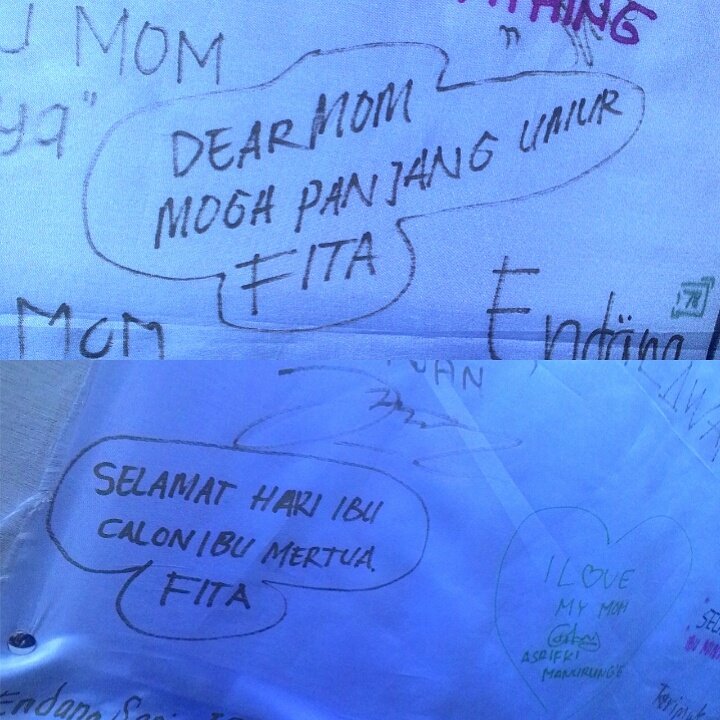 U MOM
THING
ya"
DEAR MOM
MOGA PANJANG UMUR
FITA
MOM
Endang
SELAMAT HARI IBU
CALON IBU MERTUA.
FITA
I LOVE
MY MOM
ASRIFKI
MANURUNG'S
Endang Sari